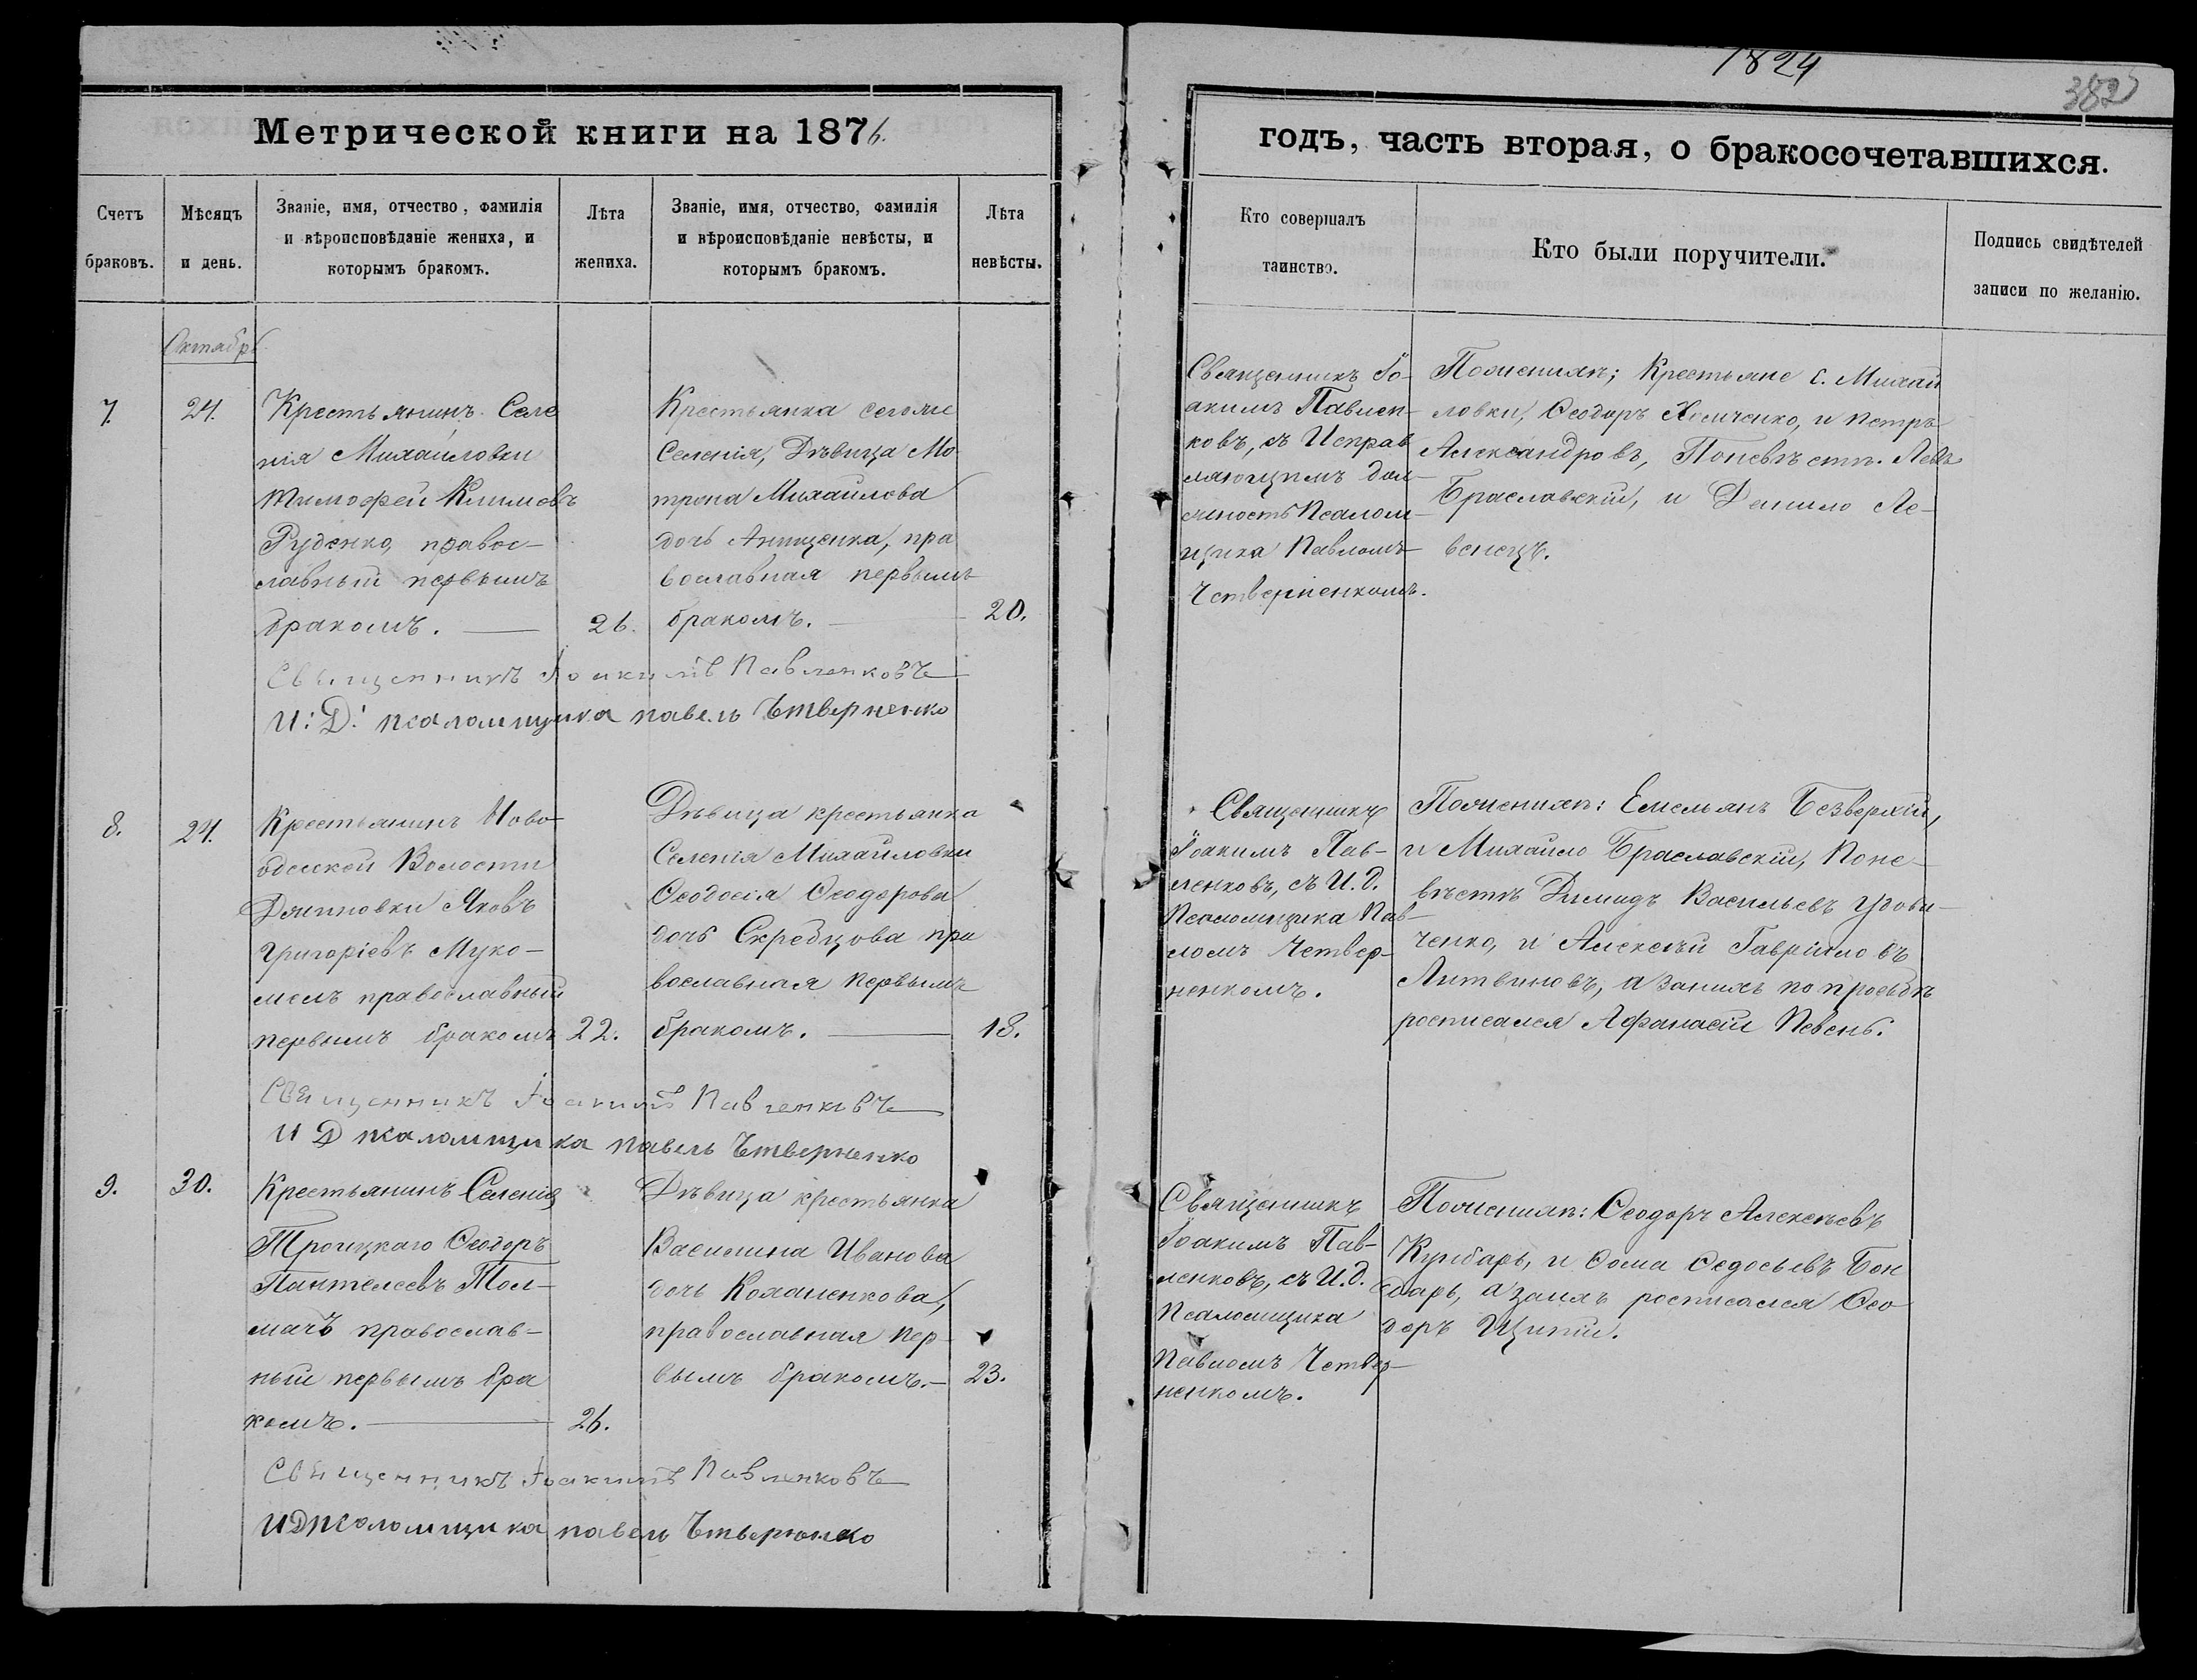 1824
382
Метрической книги на 1876.
годъ, часть вторая, о бракосочетавшихся.
Счетъ браковъ.
Мѣсяцъ и день.
Званіе, имя, отчество, фамилія
и вѣроисповѣданіе жениха, и
которымъ бракомъ.
Лѣта жениха.
Званіе, имя, отчество, фамилія
и вѣроисповѣданіе невѣсты, и
которымъ бракомъ.
Лѣта невѣсты.
Кто совершалъ
таинство.
Кто были поручители.
Подпись свидѣтелей
записи по желанію.
Октябрь
7.
24.
Крестьянинъ Селе
нія Михайловки
Тимофей Климовъ
Руденко, правос-
лавный первымъ
бракомъ.
26.
Крестьянка сегоже
Селенія, Дѣвица Мо
трона Михайлова
дочь Анищенка, пра
вославная первымъ
бракомъ.
20.
Священникъ Іо-
акимъ Павлен-
ковъ, съ Исправ
ляющимъ дол-
жность Псалом-
щика Павломъ
Четверненкомъ.
По женихѣ; Крестьяне с. Михай
ловки, Ѳеодоръ Хомченко, и Петръ
Александровъ, По невѣстѣ. Левъ
Браславскій, и Данило Ле-
венецъ.
Священникъ Іоакимъ Павленковъ
И: Д: псаломщика павелъ Чтверненко
8.
24.
Крестьянинъ Ново-
одесской Волости
Яковъ
Григоріевъ Муко-
мелъ православный
первымъ бракомъ
22.
Дѣвица крестьянка
Селенія Михайловки
Ѳеодосія Ѳеодорова
дочь Скребцова пра
вославная первымъ
бракомъ.
18.
Священникъ
Іоакимъ Пав-
ленковъ, съ И.д.
Псаломщика Пав-
ломъ Четвер-
ненкомъ.
По женихѣ: Емельянъ Безверхій,
и Михайло Браславскій, По не-
вѣстѣ Димидъ Васильевъ Удови-
ченко, и Алексѣй Гавриловъ
Литвиновъ, а за нихъ по просьбѣ
росписался Афанасій Певень.
Священникъ Іоакимъ Павленковъ
И Д псаломщика павелъ Чтверненко
9.
30.
Крестьянинъ Селенія
Троицкаго Ѳеодоръ
Пантелеевъ Тол-
мачъ православ-
ный первымъ бра
комъ.
26.
Дѣвица крестьянка
Василина Иванова
дочь Коханенкова,
православная пер-
вымъ бракомъ.
23.
Священникъ
Іоакимъ Пав-
ленковъ, съ И.д.
Псаломщика
Павломъ Четвер-
ненкомъ.
По женихѣ: Ѳеодоръ Алексѣевъ
Кумбаръ, и Ѳома Ѳедосьевъ Бон
даръ, а за нихъ росписался Ѳео
доръ Щипій.
Священникъ Іоакимъ Павленковъ
И Д псаломщика павелъ Чтверненко